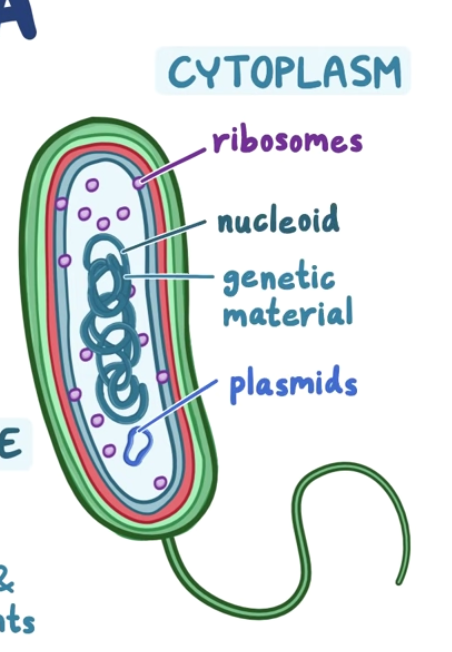 A
CYTOPLASM
ribosomes
nucleoid
genetic
material
plasmids
E
&
nts